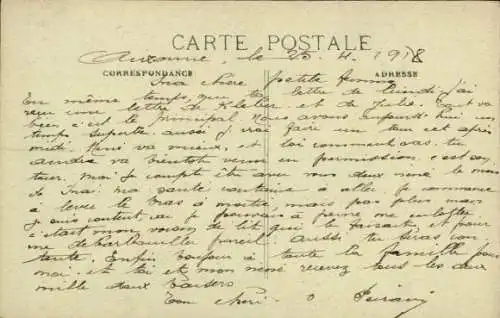 CARTE POSTALE
Auxonne, le 25. 4. 1918
CORRESPONDANCE ADRESSE
Ma chère petite femme
En même temps que ta lettre de lundi j'ai
reçu une lettre de et de Julie. Tout va
bien c'est le principal. Nous avons aujourd'hui un
temps superbe aussi j'irai faire un tour cet après
midi. va mieux, et toi comment vas tu
André va bientôt venir en permission c'est
Moi je compte être avec vous deux mémé le mois
de Mai. Ma santé continue à aller je commence
à lever le bras à moitié, mais pas plus mais
je suis content car je pouvais à peine me
c'était mon voisin de lit qui le faisait et pour
me débarbouiller pareil aussi tu seras con
tente. Enfin bonjour à toute la famille pour
moi. et toi et mon mémé recevez tous les deux
mille doux baisers
Ton chéri